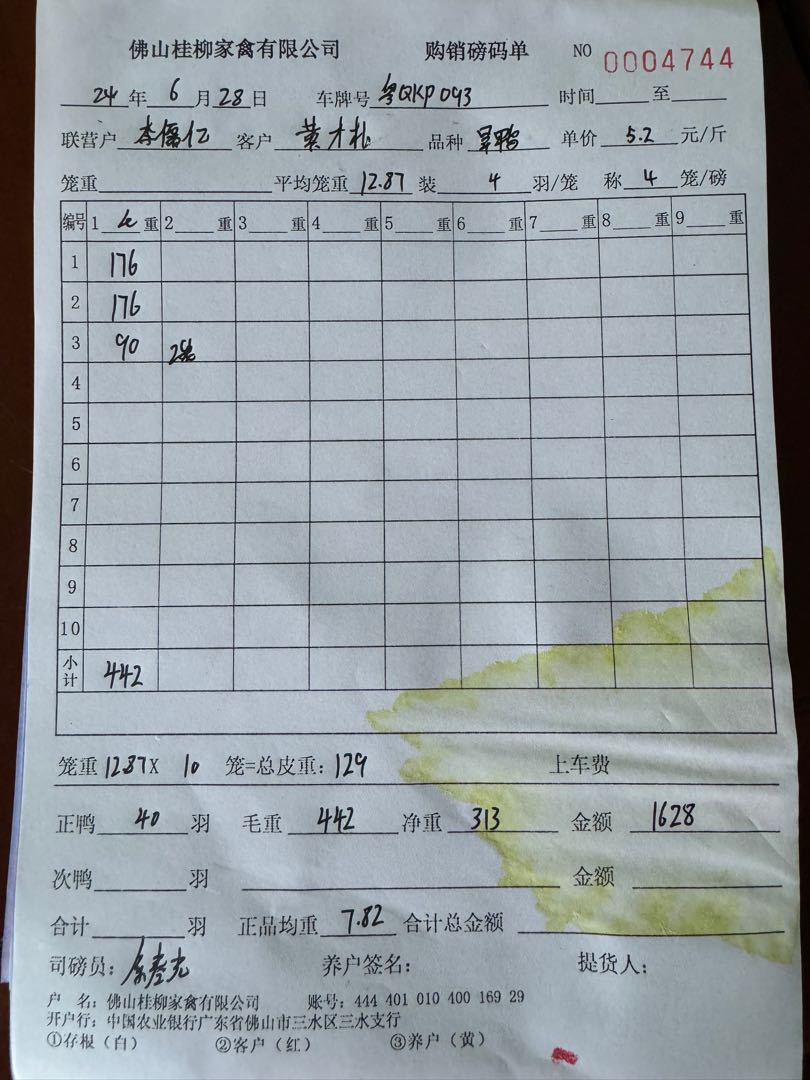 佛山桂柳家禽有限公司 购销磅码单 NO 0004744
24 年 6 月 28 日 车牌号 粤QKP093 时间 至
联营户 李儒亿 客户 黄才礼 品种 单价 5.2 元/斤
笼重 平均笼重 12.87 装 4 羽/笼 称 4 笼/磅
编号 1 重 2 重 3 重 4 重 5 重 6 重 7 重 8 重 9 重
1 176
2 176
3 90 2笼
4
5
6
7
8
9
10
小计 442
笼重 12.87 X 10 笼=总皮重: 129 上车费
正鸭 40 羽 毛重 442 净重 313 金额 1628
次鸭 羽 金额
合计 羽 正品均重 7.82 合计总金额
司磅员: 养户签名: 提货人:
户 名: 佛山桂柳家禽有限公司 账号: 444 401 010 400 169 29
开户行: 中国农业银行广东省佛山市三水区三水支行
①存根(白) ②客户(红) ③养户(黄)